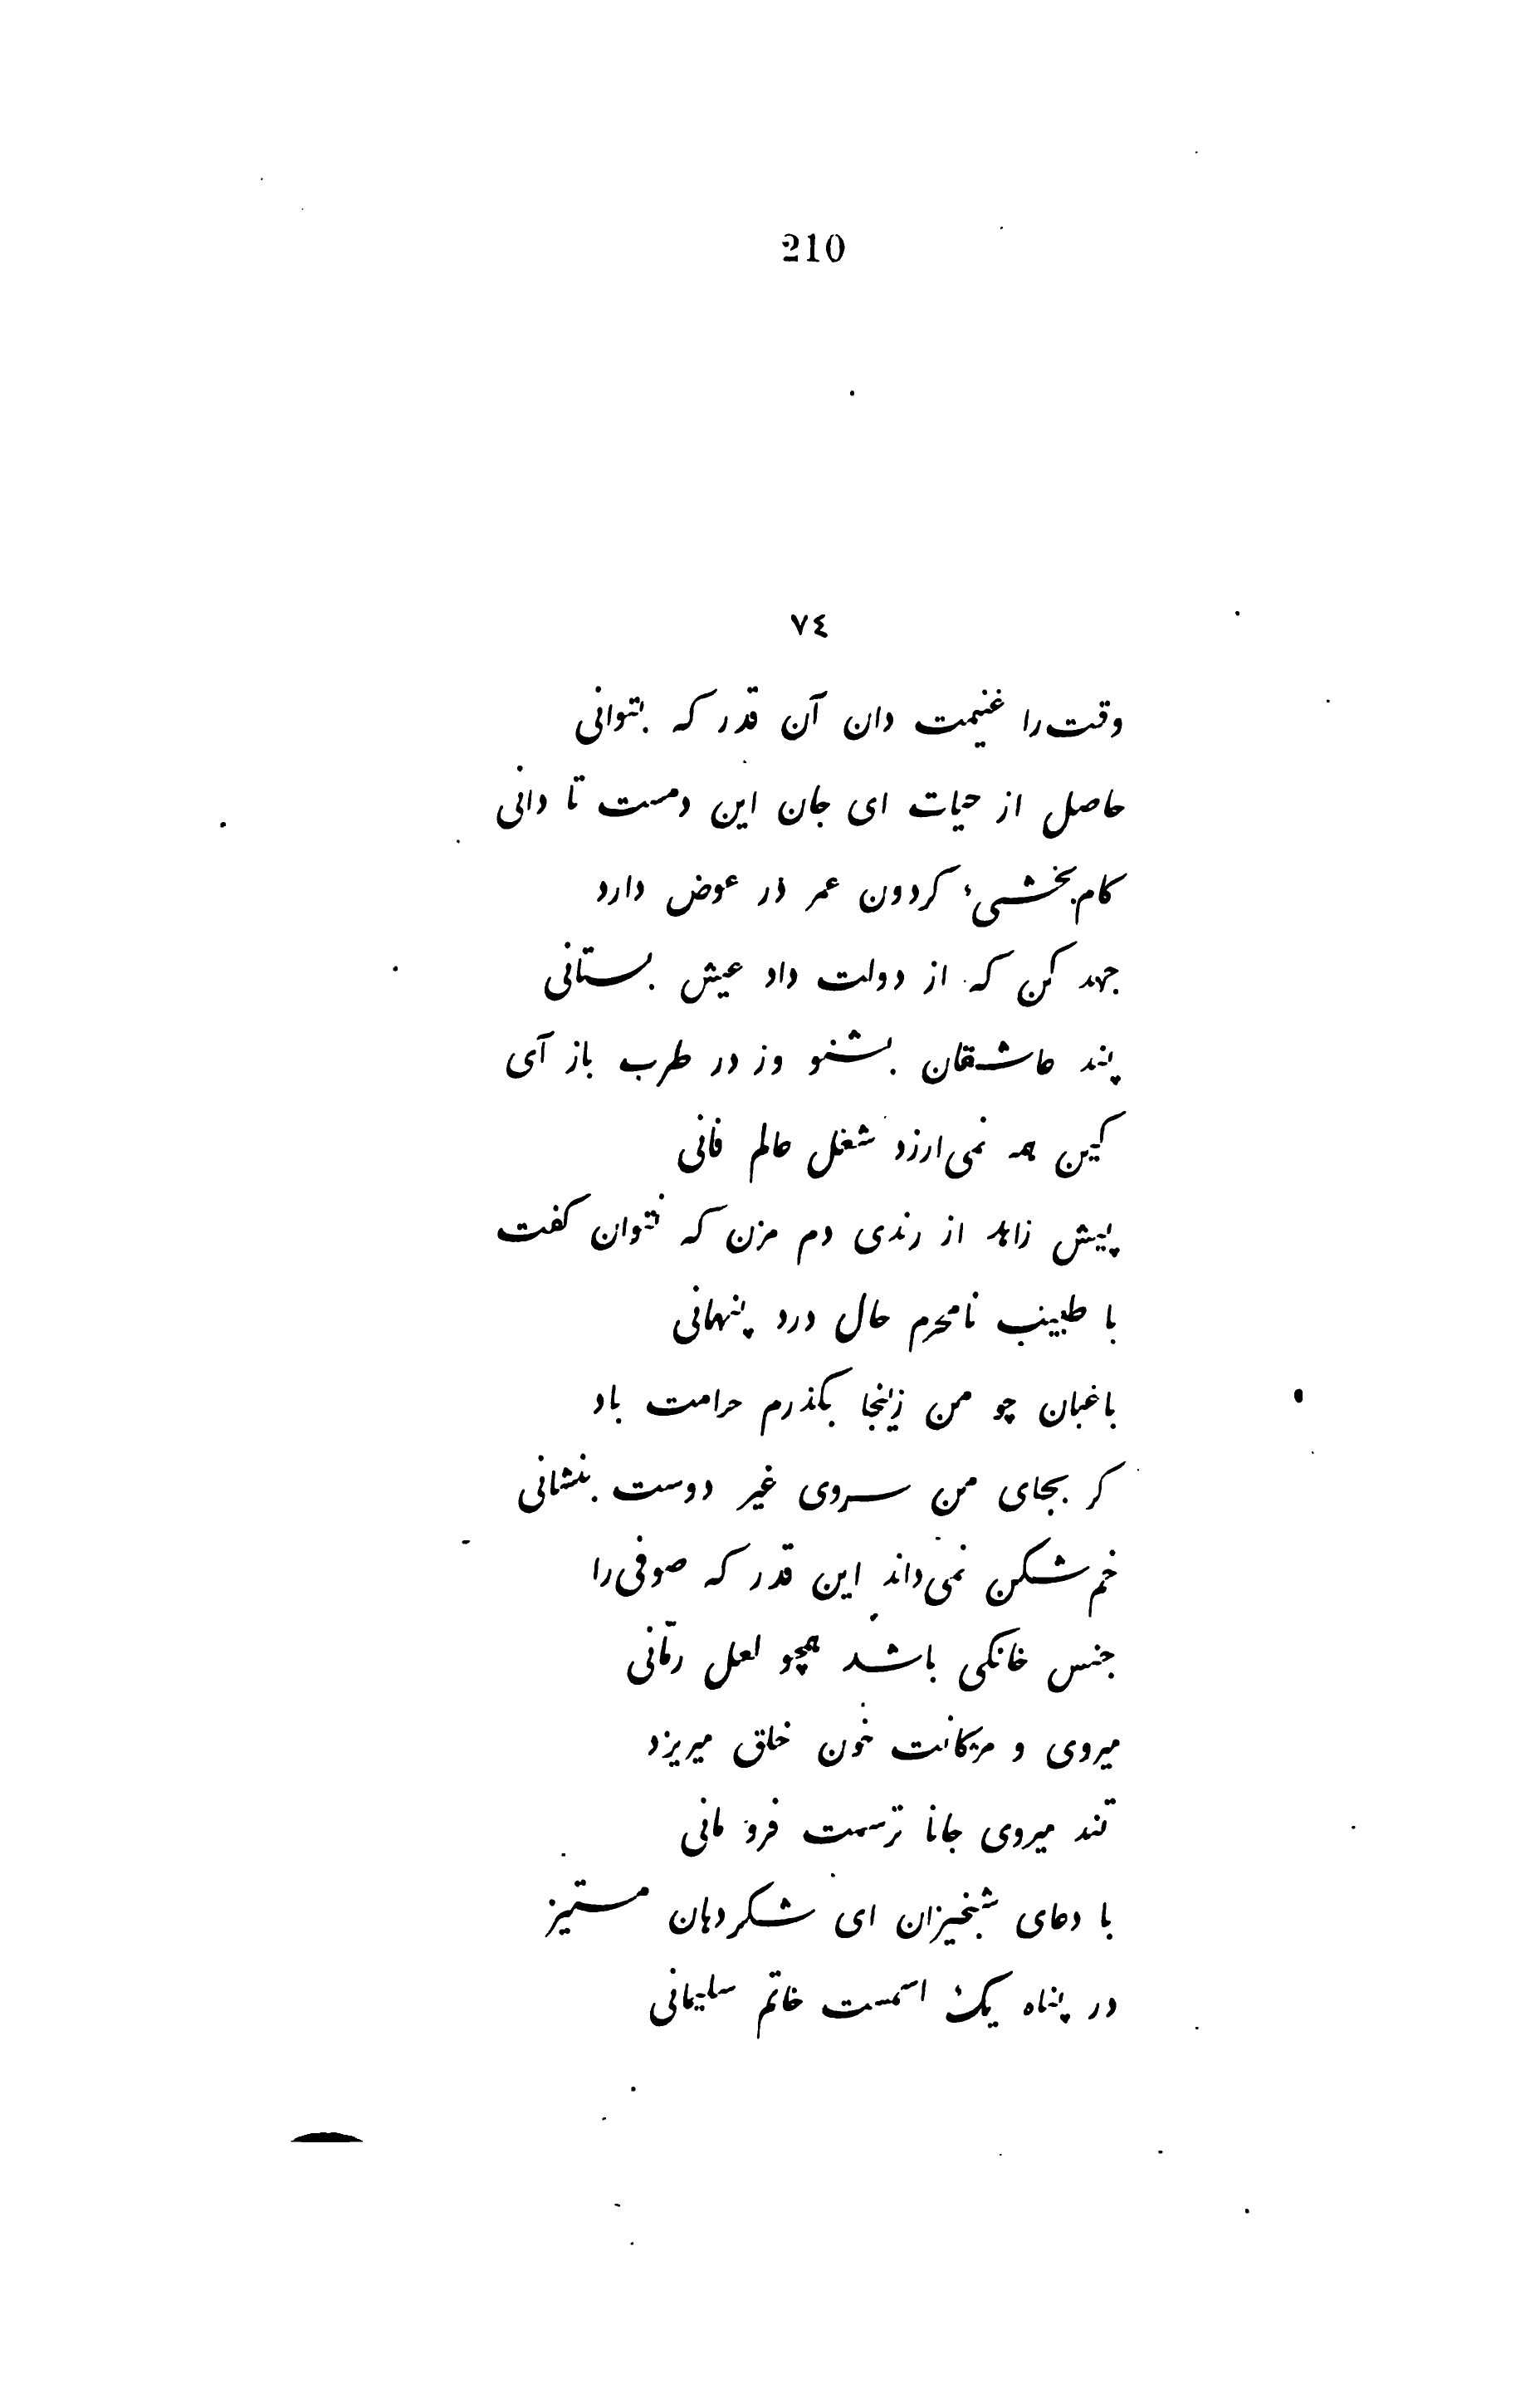 210
٧٤
وقت را غنیمت دان آن قدر که بتوانی
حاصل از حیات ای جان این دمست تا دانی
کام بخشیء کردون عمر در عوض دارد
جهد کن که از دولت داد عیش بستانی
پند عاشقان بشنو وز در طرب باز آی
کین همه نمی ارزد شغل عالم فانی
پیش زاهد از رندی دم مزن که نتوان کفت
با طبیب نامحرم حال درد پنهانی
باغبان چو من زینجا بکذرم حرامت باد
کر بجای من سروی غیر دوست بنشانی
خم شکن نمی داند این قدر که صوفی را
جنس خانکی باشد همچو لعل رمّانی
میروی و مژکانت خون خلق میریزد
تند میروی جانا ترسمت فرو مانی
با دعای شبخیزان ای شکردهان مستیز
در پناه یک اسمست خاتم سلیمانی